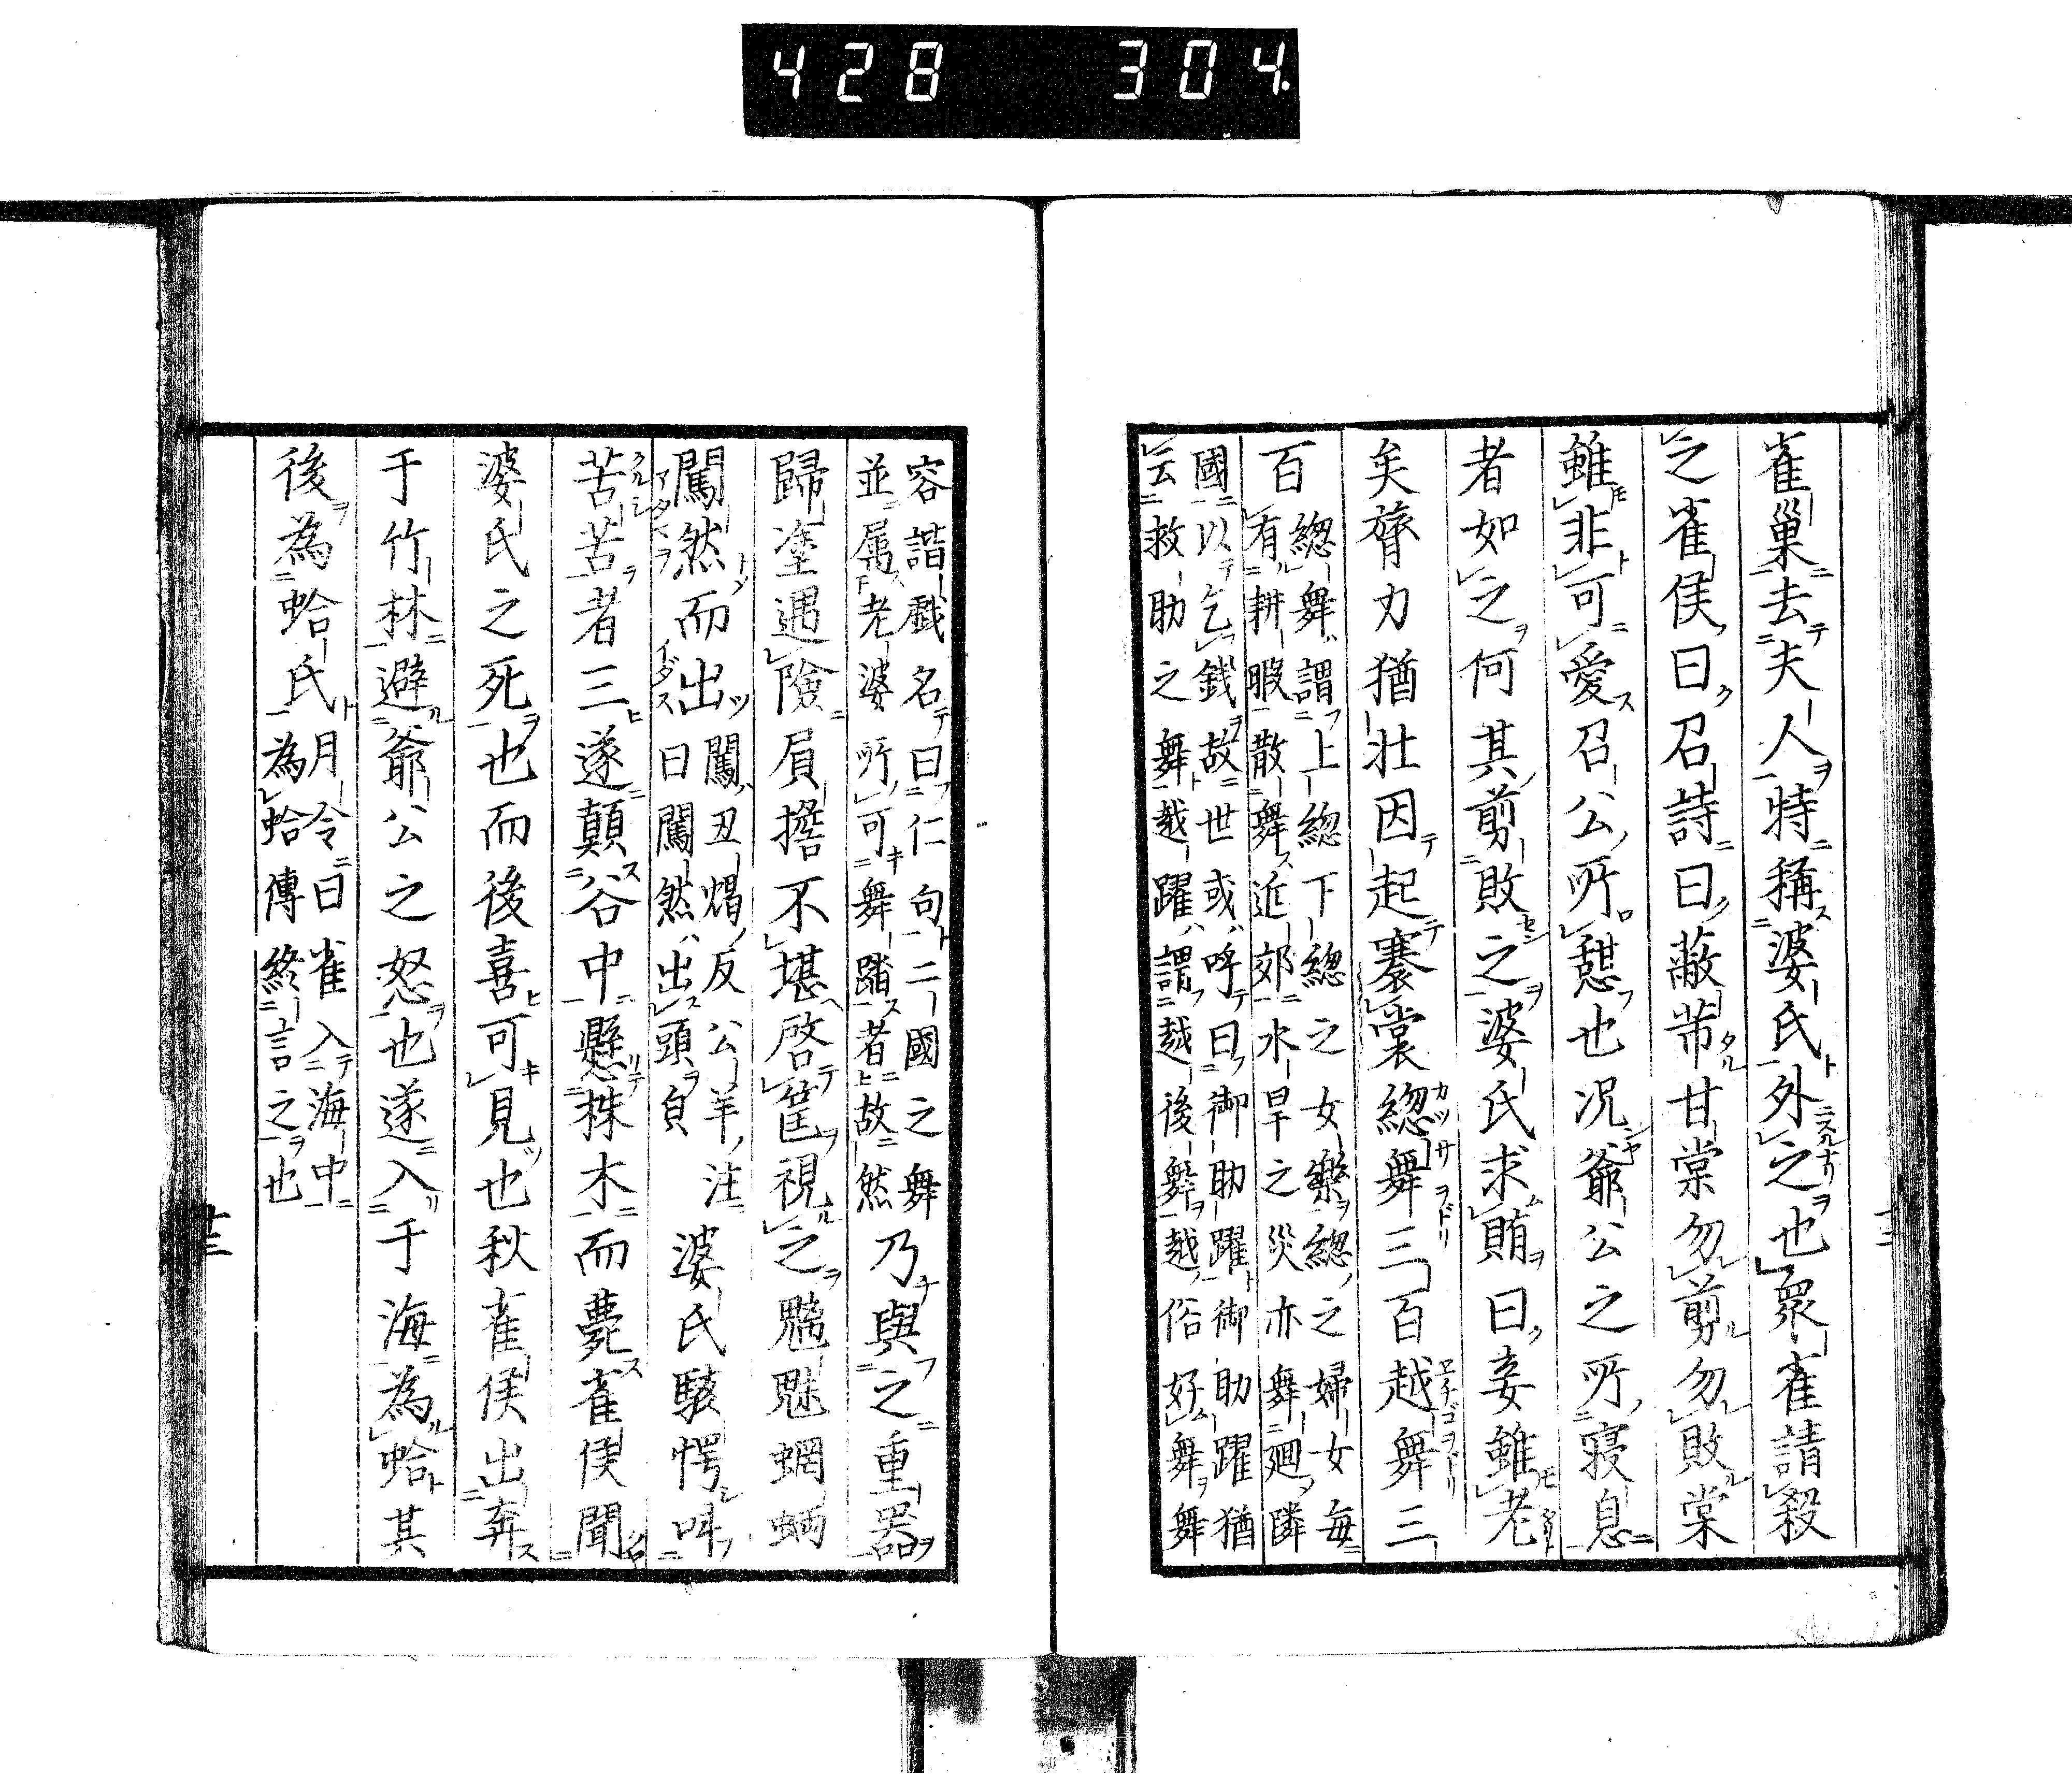 428 304
雀巢去夫人特稱婆氏外之也衆雀請殺
之雀侯曰召詩曰蔽芾甘棠勿剪勿敗棠
雖非可愛召公所憩也况爺公之所寢息
者如之何其剪敗之婆氏求賄曰妾雖老
矣膂力猶壯因起褰裳總舞三百越舞三
百
總舞謂上總下總之女樂總之婦女每
有耕暇散舞近郊水旱之災亦舞廻隣
國以乞錢故世或呼曰御助躍御助躍猶
云救助之舞越躍謂越後舞越俗好舞舞
容諧戲名曰仁句二國之舞
並属老婆所可舞踏者故然
乃與之重器
歸塗遇險屓擔不堪啓筐視之魑魅蝄蜽
闖然而出
闖丑焬反公羊注
曰闖然出頭皃
婆氏駭愕叫
苦苦者三遂顛谷中懸株木而薨雀侯聞
婆氏之死也而後喜可見也秋雀侯出奔
于竹林避爺公之怒也遂入于海為蛤其
後為蛤氏
月令曰雀入海中
為蛤傳終言之也
十三